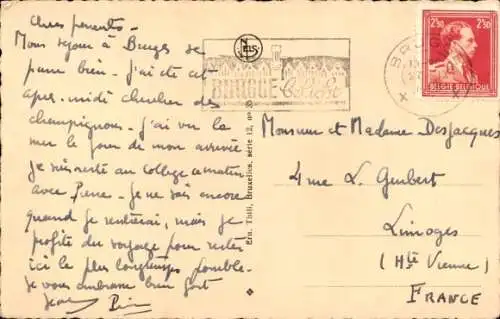 Chers parents -
Mon séjour à Bruges se
passe bien - j'ai été cet
après-midi chercher des
champignons - j'ai vu la
mer le jour de mon arrivée
Je suis resté au collège ce matin
avec Pierre - Je ne sais encore
quand je rentrerai, mais je
profite du voyage pour rester
ici le plus longtemps possible -
Je vous embrasse bien fort
Jean
NELS
BRUGGE
Ern. Thill, Bruxelles, série 12, no
2F50 2F50
BELGIE BELGIQUE
Monsieur et Madame Desjacques
4 rue L. Gembert
Limoges
(Hte Vienne)
FRANCE